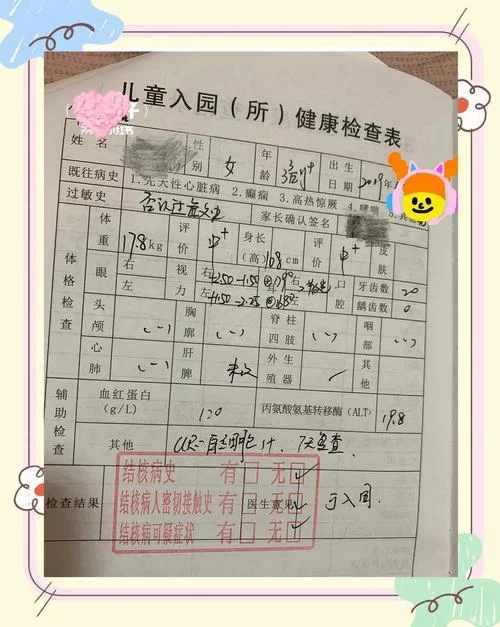 儿童入园（所）健康检查表
姓名 性别 女 年龄 3岁 出生日期 2019
既往病史 1.先天性心脏病 2.癫痫 3.高热惊厥 4.哮喘 5.其他
过敏史 否认过敏史 家长确认签名
体格检查 体重 17.8kg 评价 中+ 身长(高) 108cm 评价 中+ 皮肤
眼 右 左 视力 右 +2.50 -1.50 左 +1.50 -2.25 耳 右 左 口腔 牙齿数 20 龋齿数 0
头颅 (-) 胸廓 (-) 脊柱四肢 (-) 咽部 (-)
心肺 (-) 肝脾 未及 外生殖器 其他
辅助检查 血红蛋白(g/L) 120 丙氨酸氨基转移酶(ALT) 19.8
其他 复查
检查结果 医生意见 可入园
结核病史 有□ 无□✓
结核病人密切接触史 有□ 无□✓
结核病可疑症状 有□ 无□✓